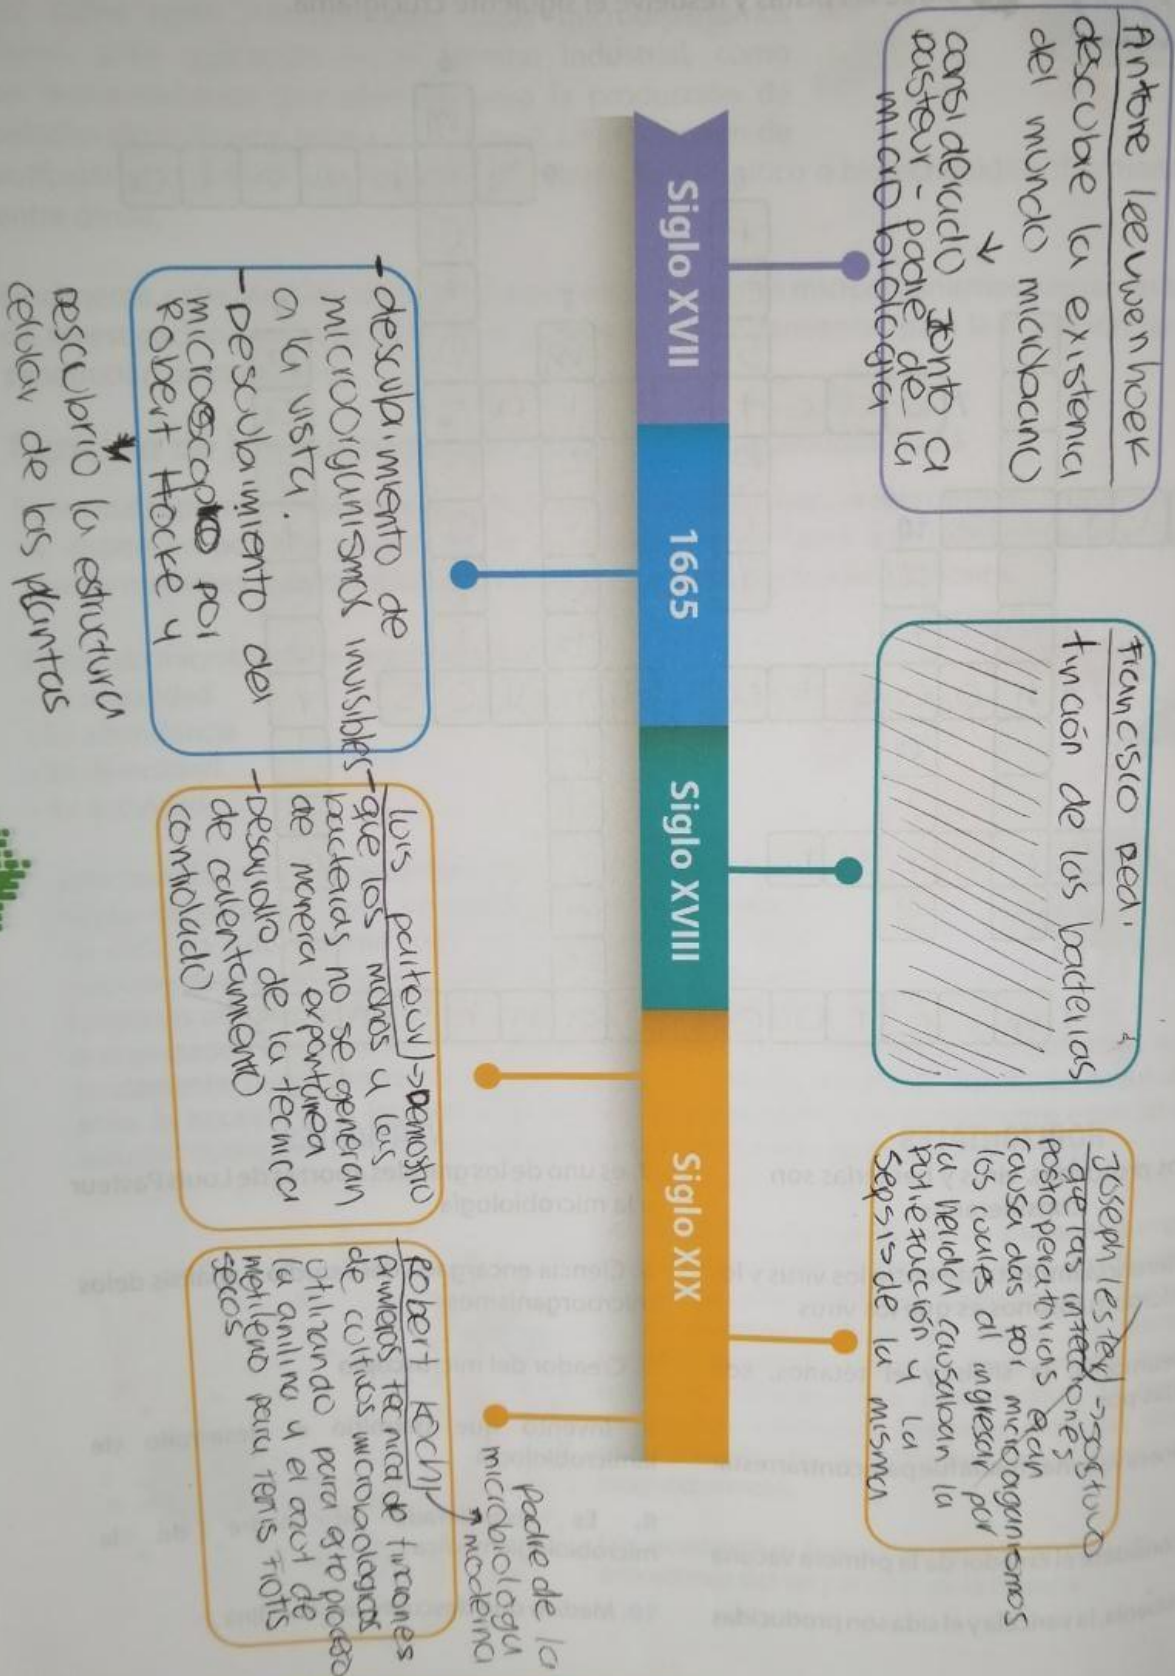 Antone leeuwenhoek
descubre la existencia
del mundo microbiano
considerado Jonto a
pasteur - padre de la
microbiología
Siglo XVII
1665
- descubrimiento de
microorganismos invisibles
a la vista.
- Descubrimiento del
microscopio por
Robert Hocke y
Descubrio la estructura
celular de las plantas
Francisco Redi
tinción de las bacterias
Siglo XVIII
Siglo XIX
Luis parteur -> Demostro
- que los mohos y las
bacterias no se generan
de manera espontánea
- Desarrollo de la técnica
de calentamiento
controlado
Joseph lester -> sostuvo
que las infecciones
postoperatorias eran
causadas por microorganismos
los cuales al ingresar por
la herida causaban la
putrefacción y la
sepsis de la misma
Robert Koch
padre de la
microbiologia
moderna
primeras técnica de tinciones
de cultivos microbiologicos
utilizando para este proceso
la anilina y el azul de
metileno para
secos